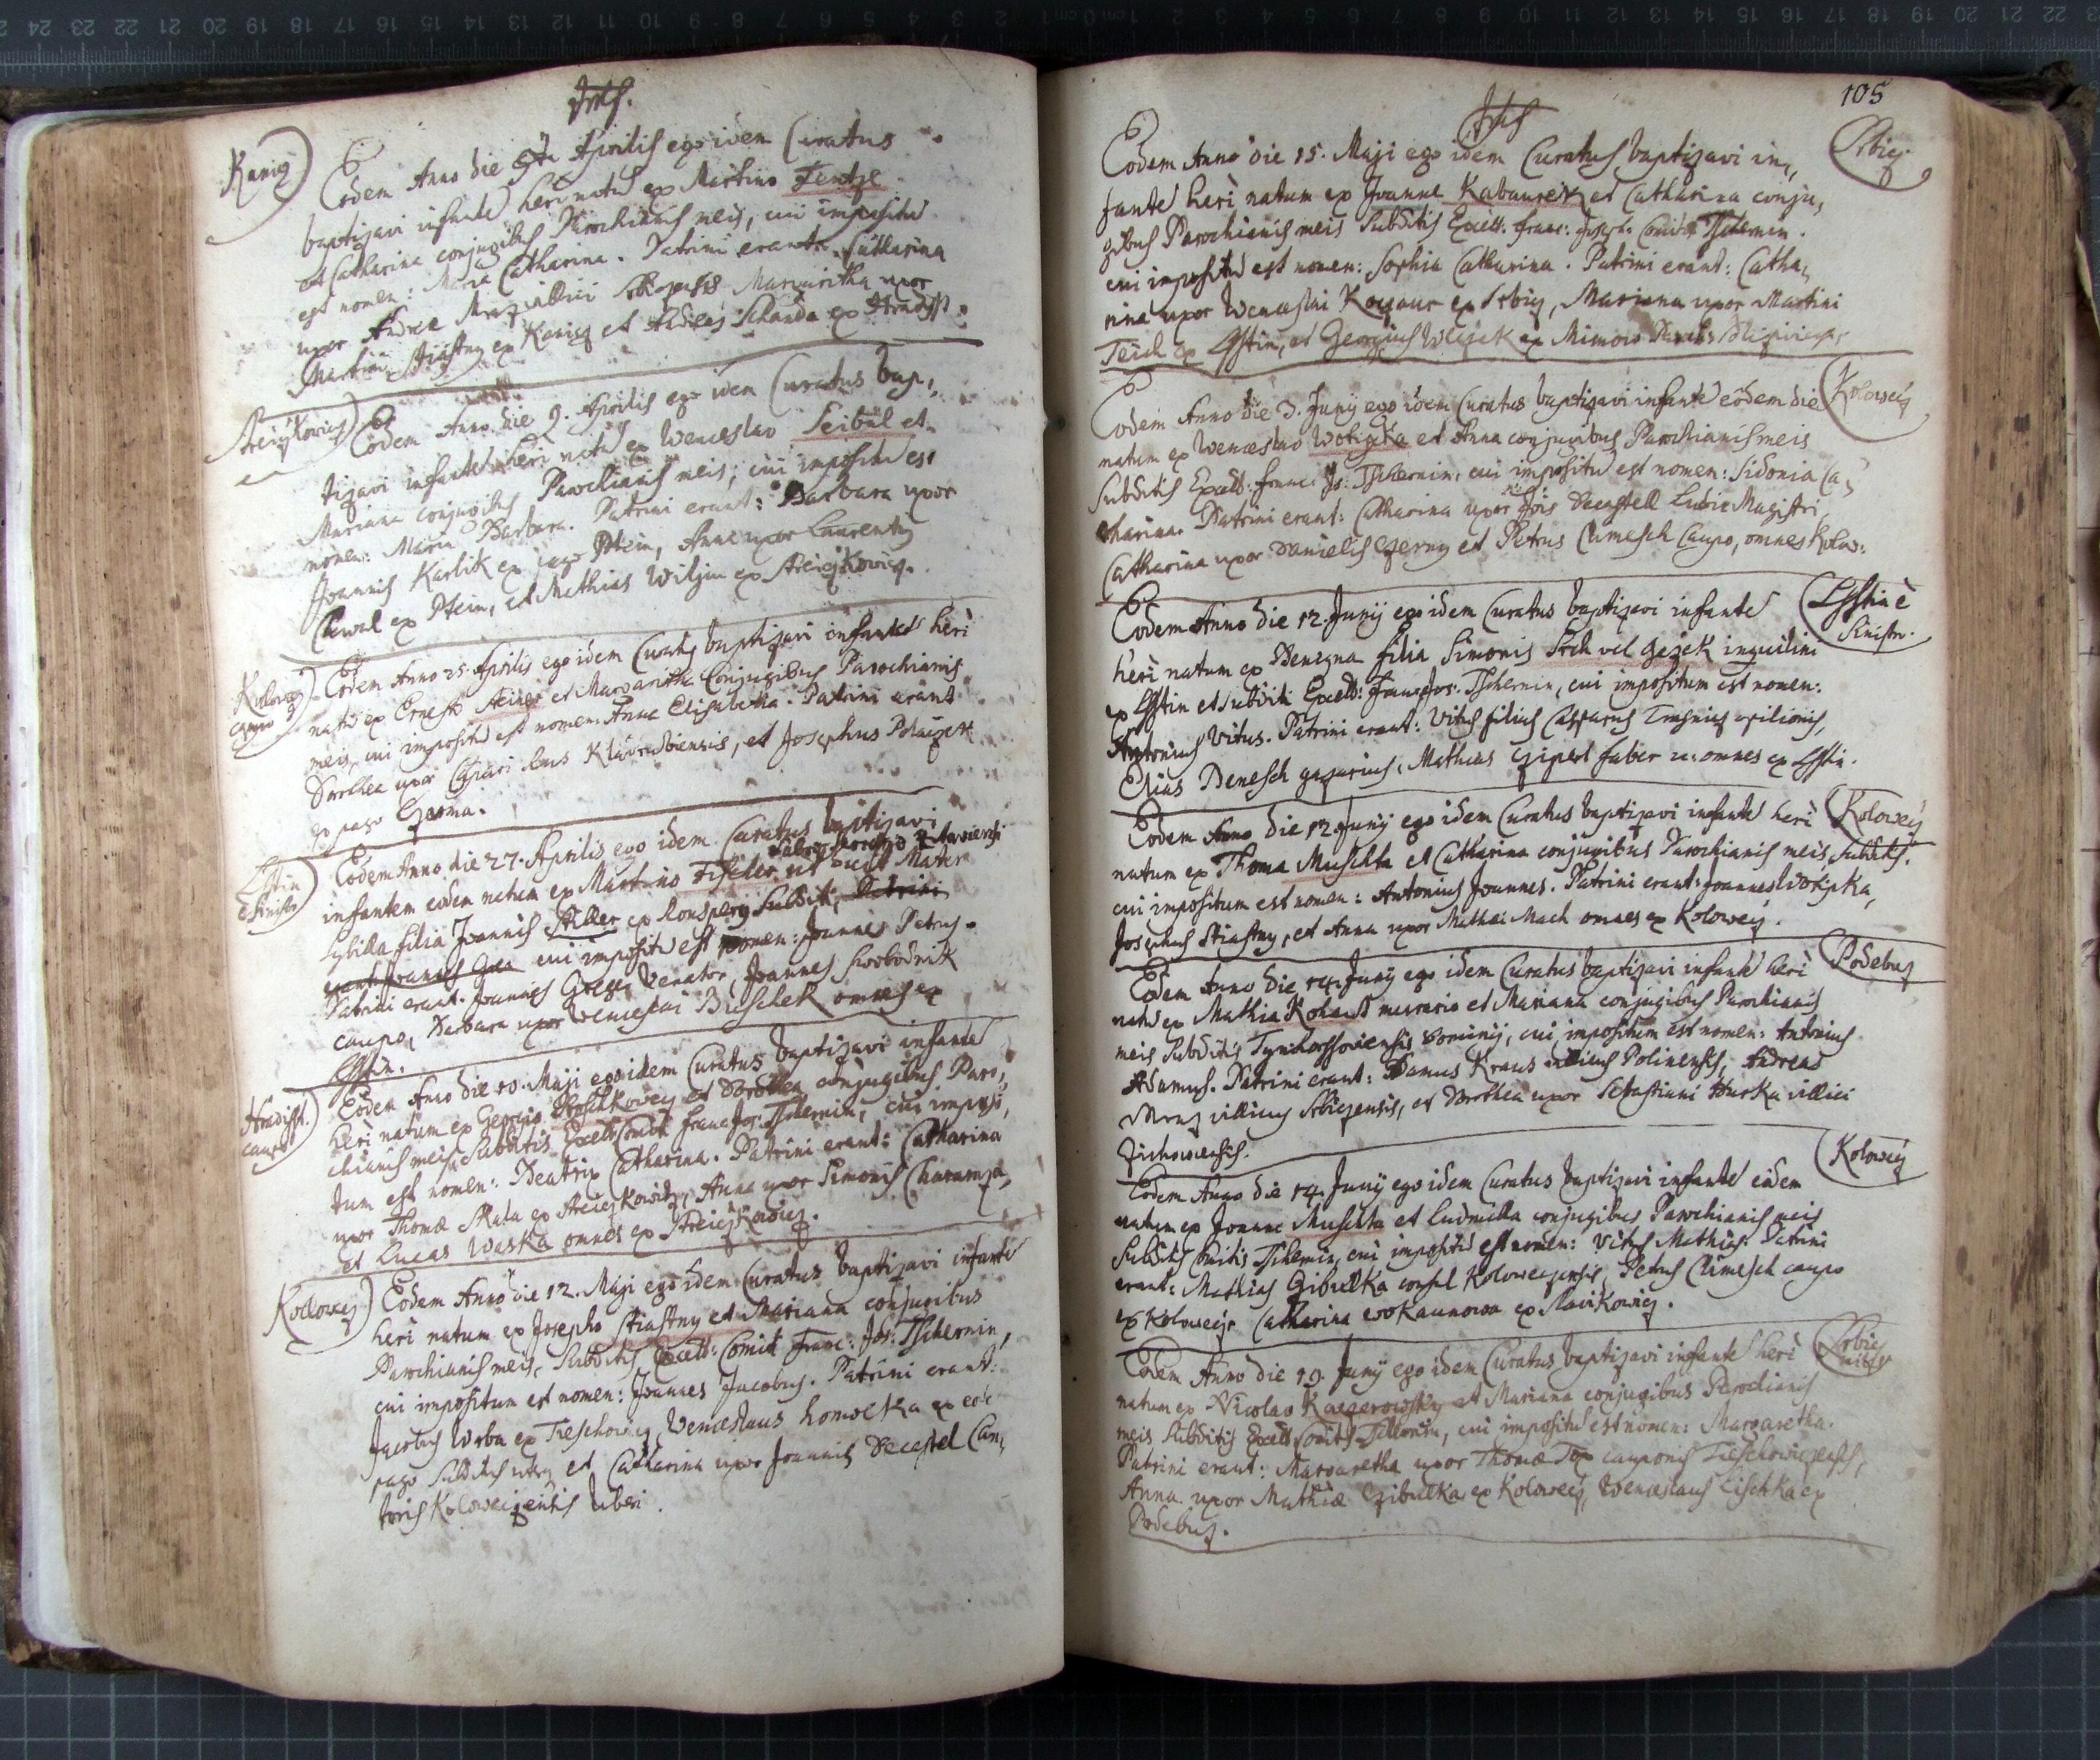 Kanicz
Eodem Anno die Aprilis ego idem Curatus
baptizavi infante heri natu ex Martino Jentze
et Catharina conjugibus Parochianis meis, cui impositu
est nomen: Maria Catharina. Patrini erant: Catharina
uxor Andreæ villici Margaritha uxor
Martini Stiastny ex Kanicz et Schanda ex Hradisst.
Streiczkowicz
Eodem Anno die 9. Aprilis ego idem Curatus bap,
tizavi infante heri natu ex Wenceslao Seibül et
Mariana conjugibus Parochianis meis; cui impositu est
nomen: Maria Barbara. Patrini erant: Barbara uxor
Joannis Karlik ex pago Ptein, Anna uxor Laurentij
ex Ptein, et Mathias Wiljm ex Streiczkowicz.
Kolowecz
caupo
Eodem Anno 25. Aprilis ego idem Curatus baptizavi infante heri
natu ex Ernesto Steiner et Margaritha Conjugibus Parochianis
meis, cui impositu est nomen: Anna Elisabetha. Patrini erant
Dorothea uxor Caspari et Josephus
pago
Lsstin
è Sinistr.
Eodem Anno die 27. Aprilis ego idem Curatus baptizavi
infantem eodem natum ex Martino Fischer ut dicit Mater
Sybilla filia Joannis Stiller ex Ronsperg Subditi, Patrini
erant Joannes cui impositu est nomen: Joannes Petrus.
Patrini erant: Joannes Venator, Joannes Swobodnik
caupo, Barbara uxor Wenceslai Buschek omnes ex
Lsstin.
Hradisst.
caupo
Eodem Anno die 10. Maji ego idem Curatus baptizavi infante
heri natum ex Georgio et Dorothea conjugibus Paro,
chianis meis Subditis Excell: Comit: Franc: Jos: Tschernin, cui imposi,
tum est nomen: Beatrix Catharina. Patrini erant: Catharina
uxor Thomæ Skala ex Streiczkowicz, Anna uxor Simonis
et Lucas Waska omnes ex Streiczkowicz.
Kollowecz
Eodem Anno die 12. Maji ego idem Curatus baptizavi infante
heri natum ex Josepho Stiastny et Mariana conjugibus
Parochianis meis, Subditis Excell: Comit: Franc: Jos: Tschernin,
cui impositum est nomen: Joannes Jacobus. Patrini erant:
Jacobus Wrba ex Wenceslaus Homolka ex eode
pago Subditus et Catharina uxor Joannis Decastel Can,
toris Koloweczensis
105
Srbicz
Eodem Anno die 15. Maji ego idem Curatus baptizavi in,
fante heri natum ex Joanne Kabaurek et Catharina conju,
gibus Parochianis meis Subditis Excell: Franc: Joseph: Comit: Tschernin.
cui impositu est nomen: Sophia Catharina. Patrini erant: Catha,
rina uxor Wenceslai Koczaur ex Srbicz, Mariana uxor Martini
Teich ex Lsstin, et Georgius Wlczek ex Mimow
Kolowecz
Eodem Anno die 3. Junij ego idem Curatus baptizavi infante eodem die
natum ex Wenceslao Wotipka et Anna conjugibus Parochianis meis
Subditis Excell: Franc: Jo: Tschernin, cui impositu est nomen: Sidonia Ca,
tharina. Patrini erant: Catharina uxor Jois Decastell Ludi Magistri,
Catharina uxor Danielis Czerny et Petrus Climesch Caupo, omnes Kolow:
Lsstin è
Sinistr.
Eodem Anno die 12. Junij ego idem Curatus baptizavi infante
heri natum ex Benigna filia Simonis Srch vel Gezek inquilini
ex Lsstin et subditi Excell: Franc: Jos: Tschernin, cui impositum est nomen:
Antonius Vitus. Patrini erant: Vitus filius Casparus opilionis,
Elias Benesch Mathias Gipert faber omnes ex Lsstin.
Kolowecz
Eodem Anno die 12. Junij ego idem Curatus baptizavi infante heri
natum ex Thoma Muschka et Catharina conjugibus Parochianis meis Subditis.
cui impositum est nomen: Antonius Joannes. Patrini erant: Joannes Wotipka,
Josephus Stiastny, et Anna uxor Mathæi Mach omnes ex Kolowecz.
Podebus
Eodem Anno die 14. Junij ego idem Curatus baptizavi infante heri
natu ex Mathia Kohaut murario et Mariana conjugibus Parochianis
meis Subditis Dominij, cui impositum est nomen: Antonius
Adamus. Patrini erant: Adamus Kraus villicus Polinensis, Andreas
Mraz villicus Srbiczensis, et Dorothea uxor Sebastiani Hurka villici
Zichowensis.
Kolowecz
Eodem Anno die 14. Junij ego idem Curatus baptizavi infante eodem
natum ex Joanne Muschka et Ludmilla conjugibus Parochianis meis
Subditis Comitis Tschernin, cui impositu est nomen: Vitus Mathias. Patrini
erant: Mathias Czibulka consul Koloweczensis, Petrus Climesch caupo
ex Kolowecz Catharina ex Slawikowicz.
Srbicz
Eodem Anno die 19. Junij ego idem Curatus baptizavi infante heri
natum ex Nicolao Kaczerowsky et Mariana conjugibus Parochianis
meis Subditis Excell: Comitis Tschernin, cui impositu est nomen: Margaretha.
Patrini erant: Margaretha uxor Thomæ cauponis
Anna uxor Mathiæ Czibulka ex Kolowecz, Wenceslaus Lischka ex
Podebus.